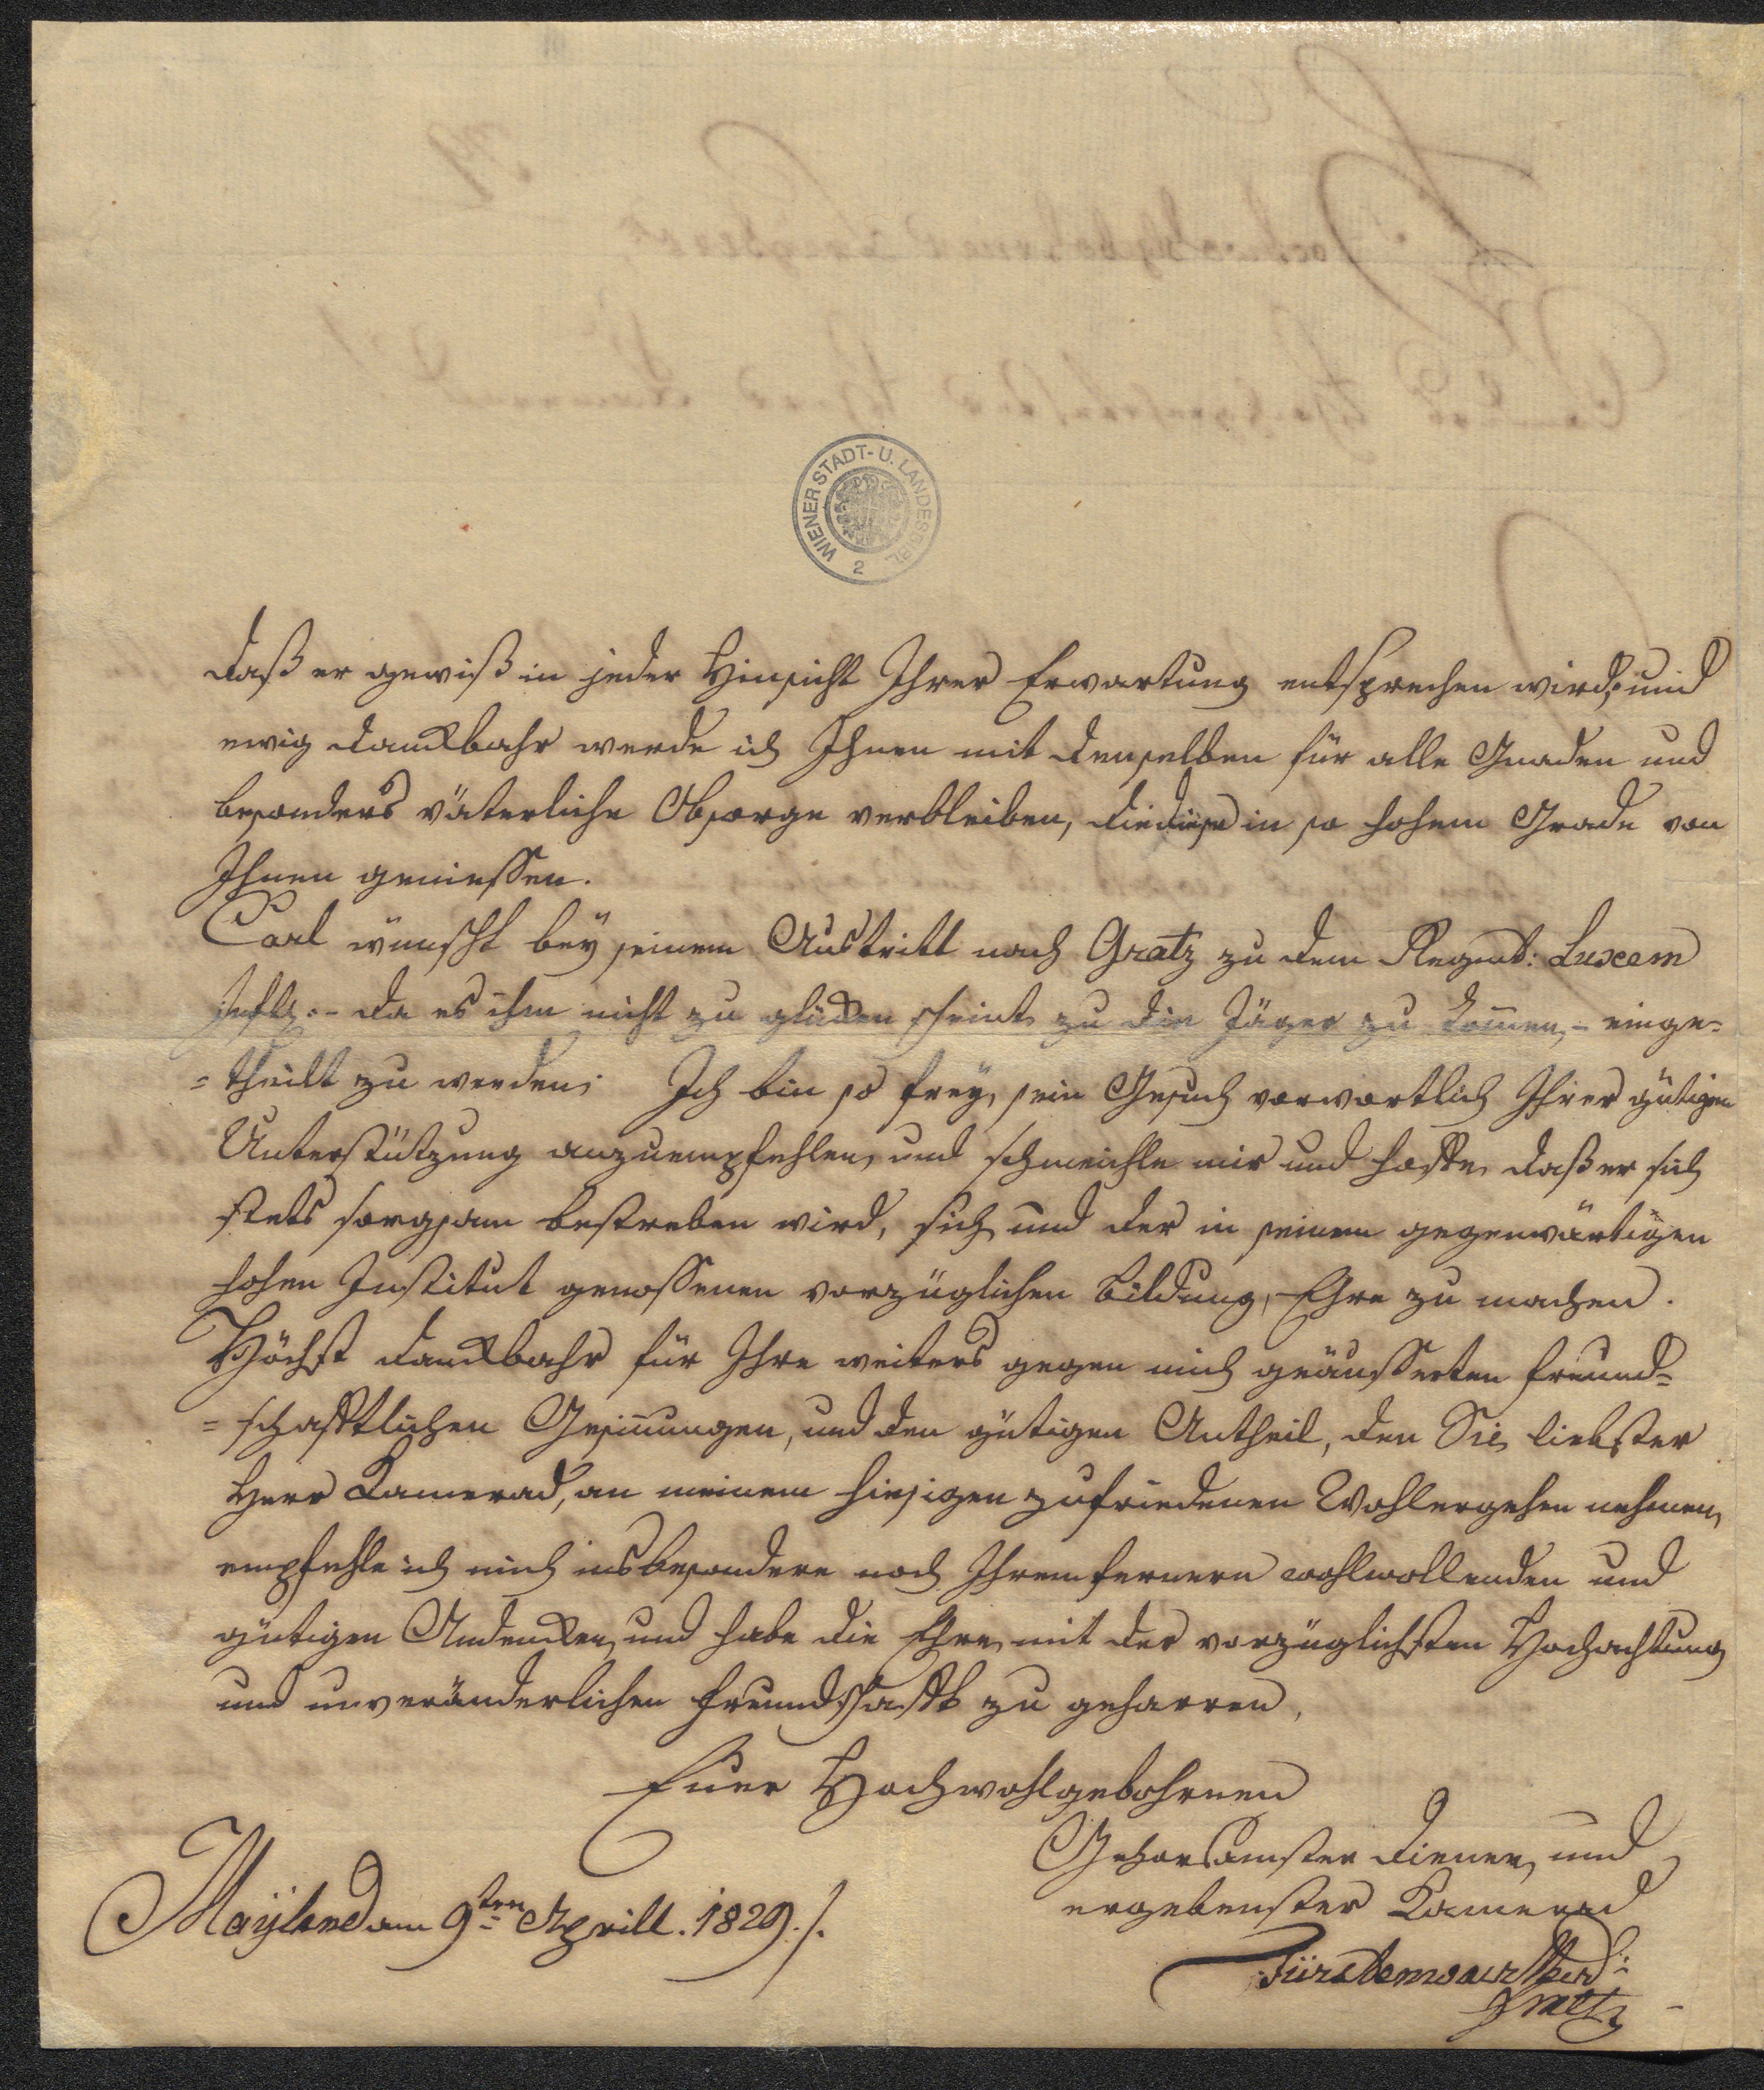 WIENER STADT- U. LANDESBIBL.
2
daß er gewiß in jeder Hinsicht Ihrer Erwartung entsprechen wird; und
ewig dankbahr werde ich Ihnen mit denselben für alle Gnaden und
besonders väterliche Obsorge verbleiben, die diese in so hohem Grade von
Ihnen geniessen.
Carl wünscht beÿ seinem Austritt nach Gratz zu dem Regmt: Luxem
da es ihm nicht zu glücken scheint zu die Jäger zu kom̅en, - einge-
=theilt zu werden; Ich bin so freÿ, sein Gesuch vorwortlich Ihrer gütigen
Unterstützung anzuempfehlen, und schmeichle mir und hoffe, daß er sich
stets sorgsam bestreben wird, sich und der in seinem gegenwärtigen
hohen Institut genossenen vorzüglichen Bildung, Ehre zu machen.
Höchst dankbahr für Ihre weiters gegen mich geäusserten freund=
=schafftlichen Gesin̅ungen, und den gütigen Antheil, den Sie, liebster
Herr Kamerad, an meinem hiesigen zufriedenen Wohlergehen nehmen,
empfehle ich mich insbesondere noch Ihrem fernern wohlwollenden und
gütigen Andenken, und habe die Ehre, mit der vorzüglichsten Hochachtung
und unveränderlichen Freundschafft zu geharren,
Euer Hochwohlgebohrnen
Gehorsamster Diener, und
ergebenster Kamerad
Maÿland am 9ten Aprill. 1829./.
Fürstenwaerther